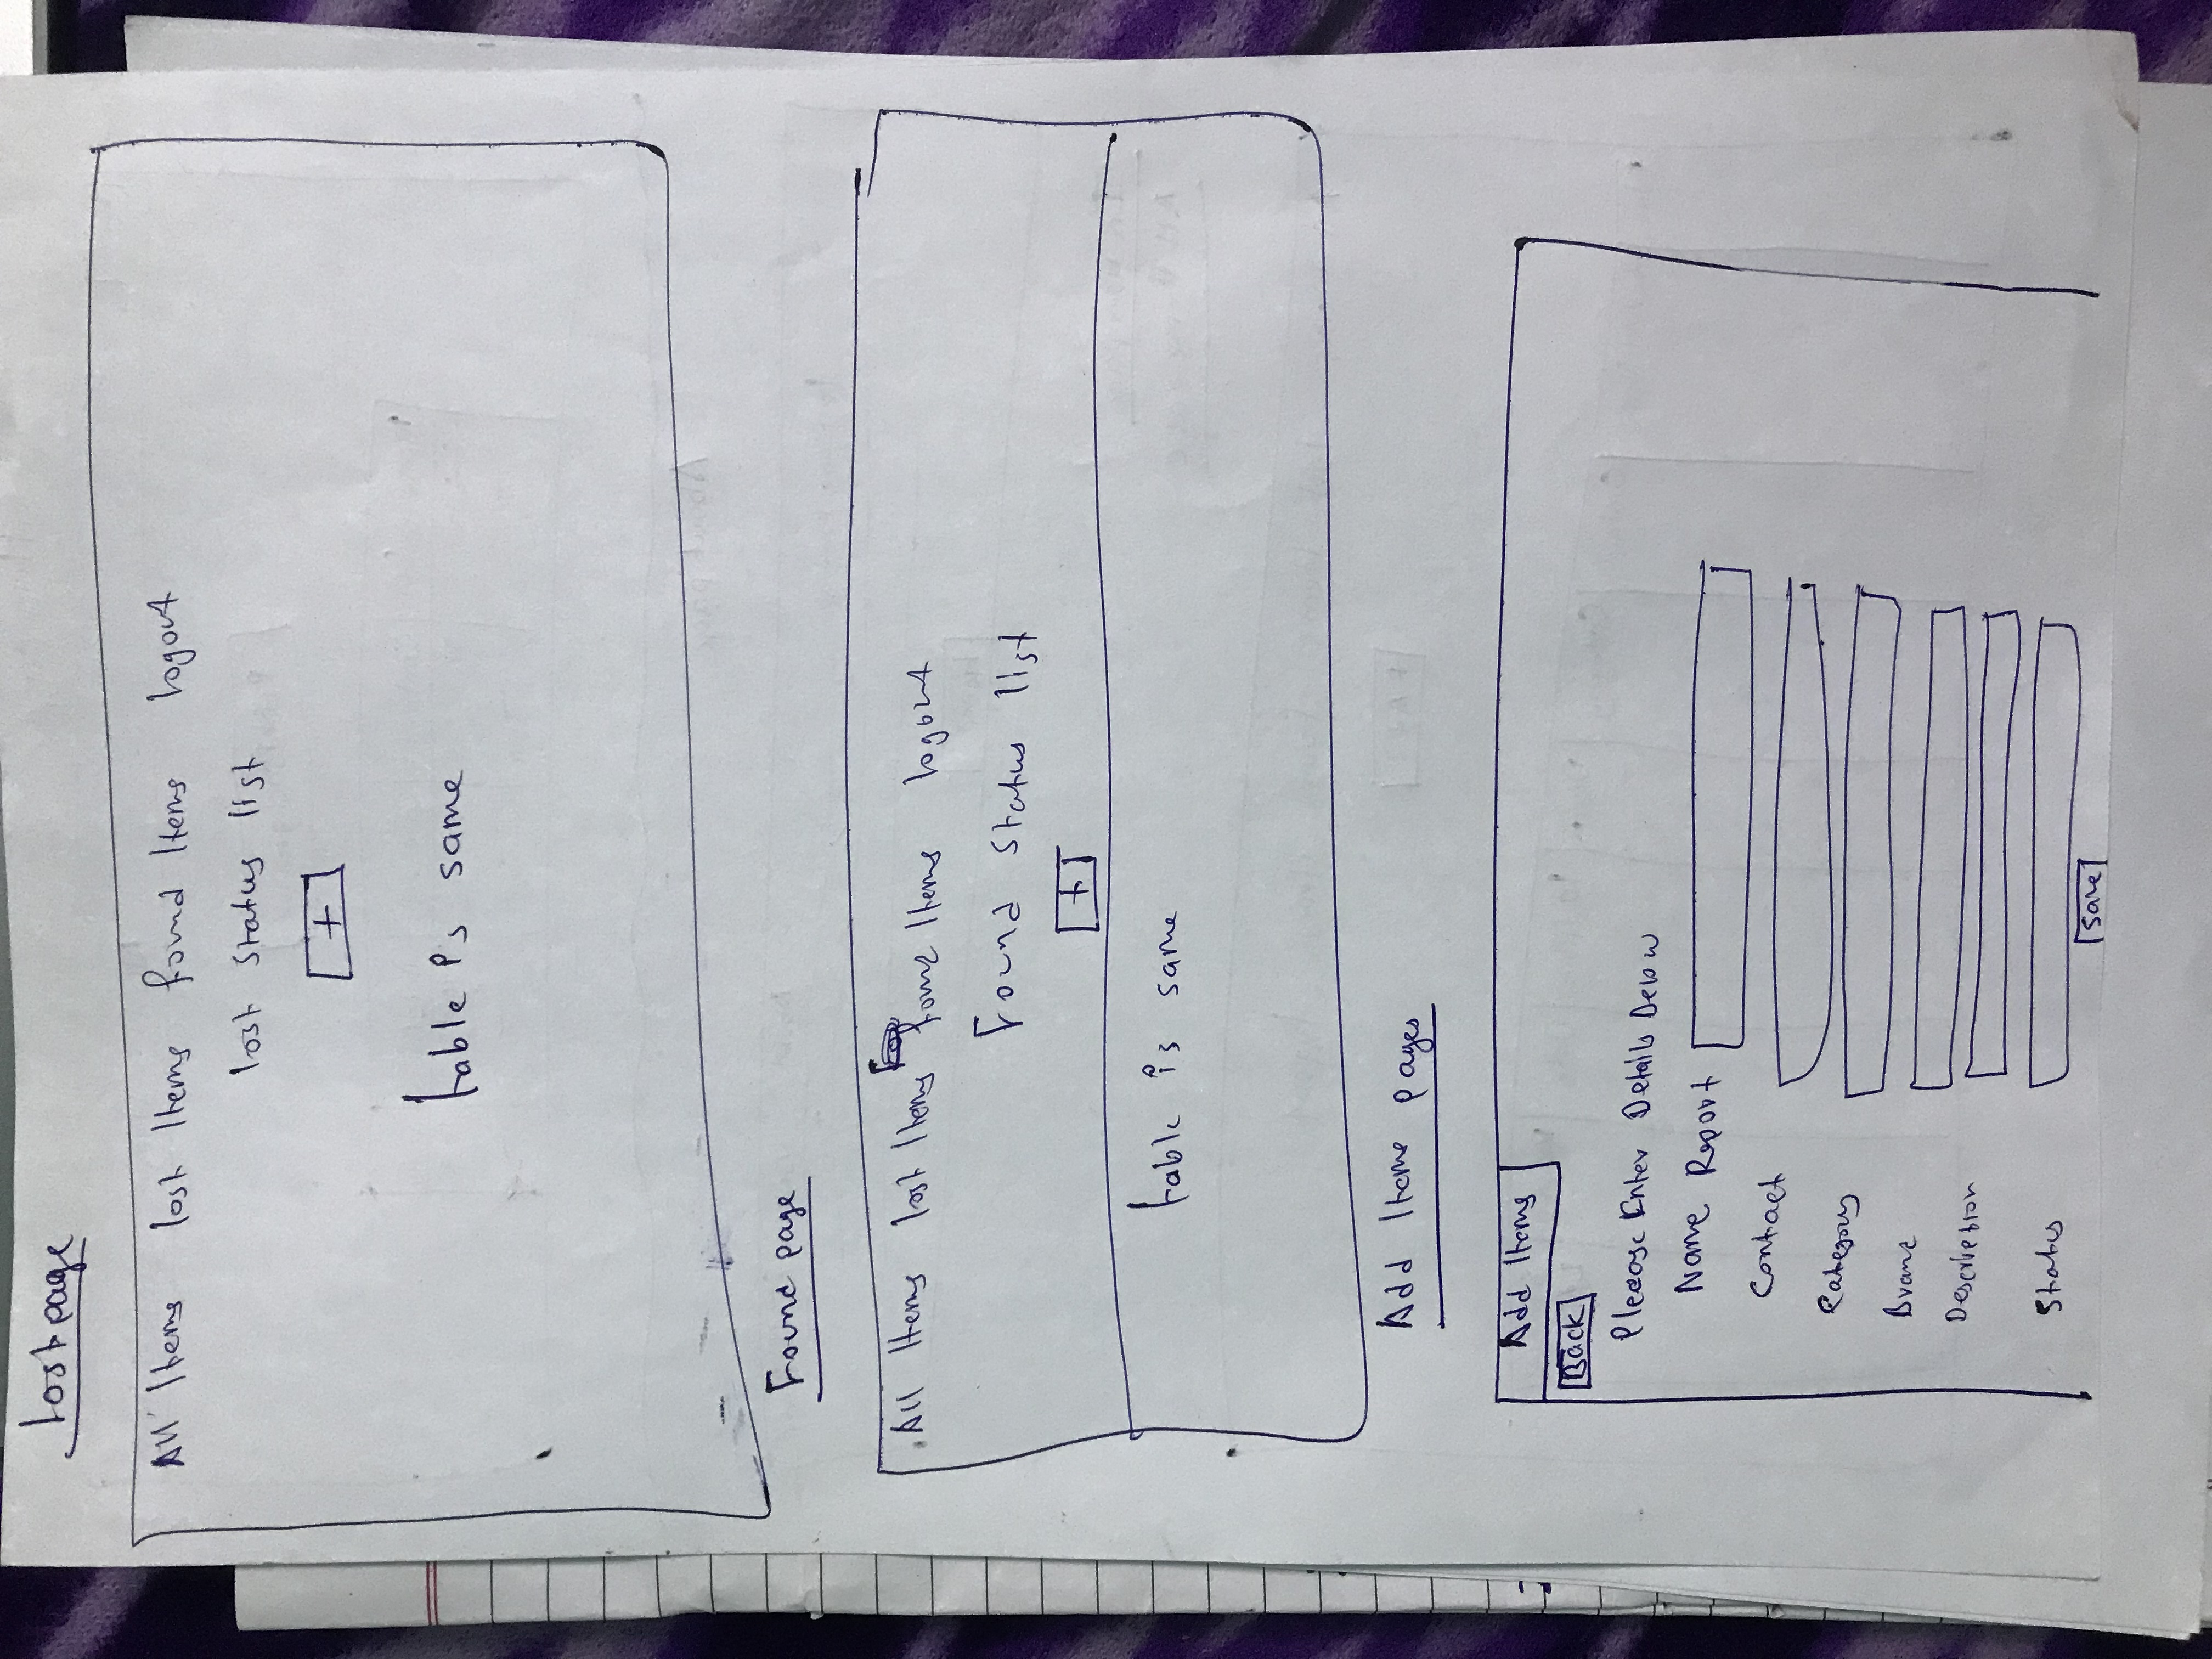 Lost page
All Items lost Items found Items logout
lost status list
+
table is same
Found page
All Items lost Items found Items logout
Found status list
+
table is same
Add Items pages
Add Items
Back
Please Enter Details Below
Name Report
Contact
Category
Brand
Description
Status
Save